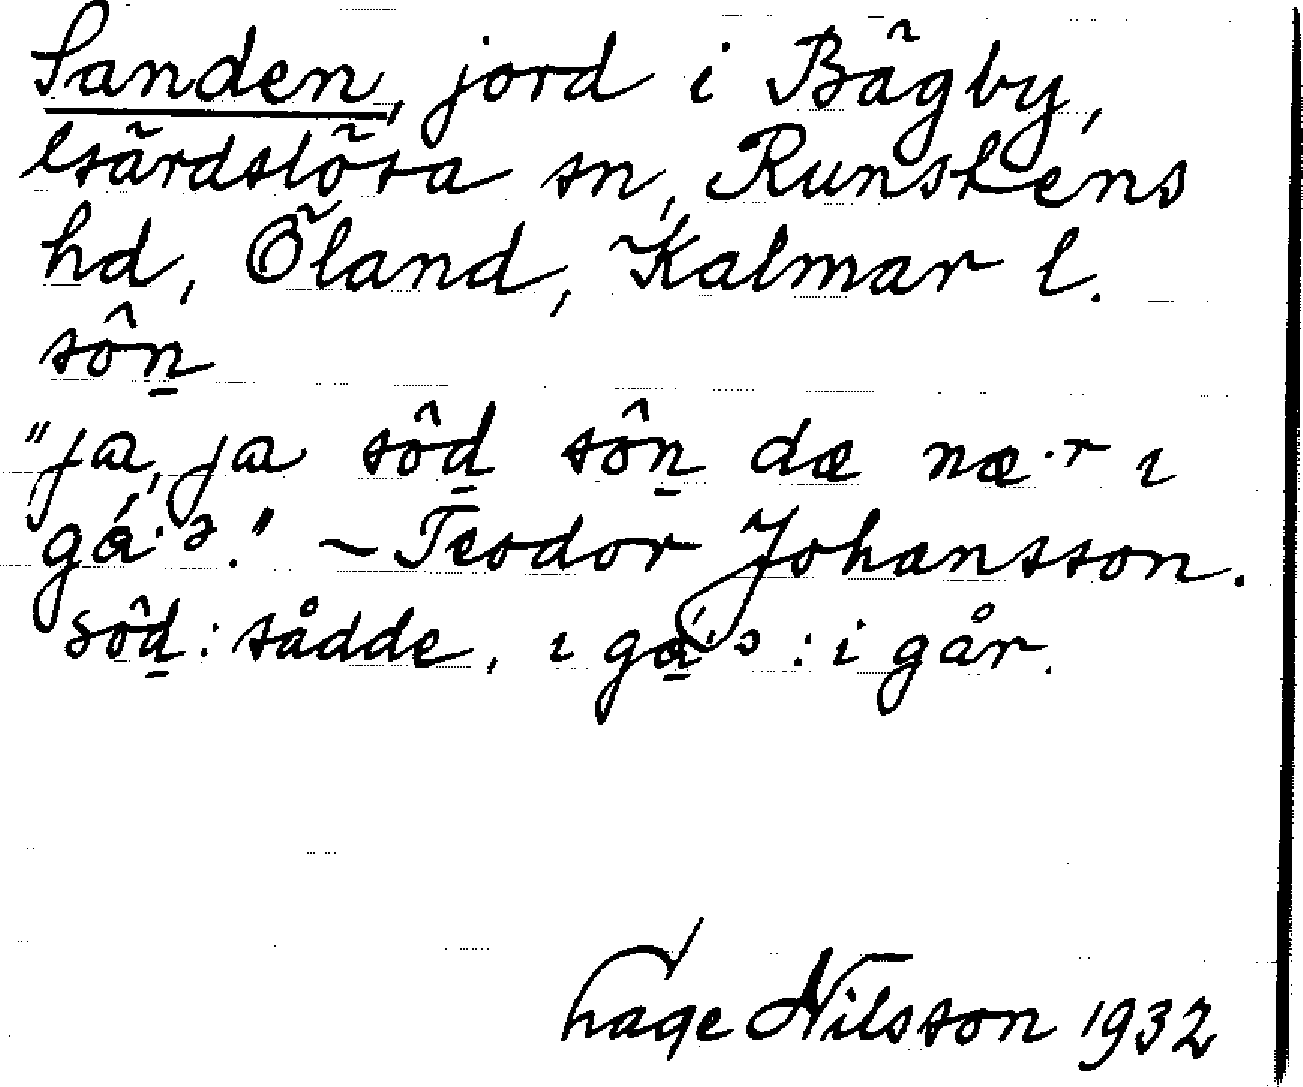 Sanden, jord i Bägby,
Gärdslösa sn, Runstens
hd, Öland, Kalmar l.
sôn̠
"ja, ja sôd̠ sôn̠ dæ næ·r ɩ
gá·ɔ." – Teodor Johansson.
sôd̠ : sådde, ɩ gá̠·ɔ : i går.
Hage Nilsson 1932